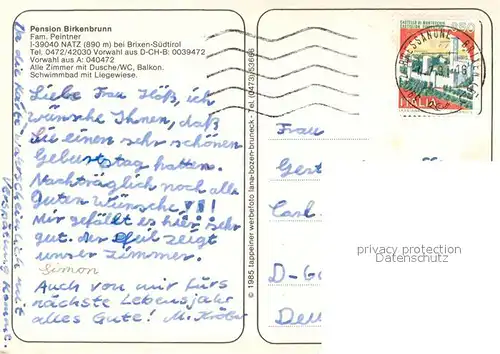 Pension Birkenbrunn
Fam. Peintner
I-39040 NATZ (890 m) bei Brixen-Südtirol
Tel. 0472/42030 Vorwahl aus D-CH-B: 0039472
Vorwahl aus A: 040472
Alle Zimmer mit Dusche/WC, Balkon.
Schwimmbad mit Liegewiese.
Liebe Frau Höß, ich
wünsche Ihnen, daß
Sie einen sehr schönen
Geburtstag hatten.
Nachträglich noch alle
Guten Wünsche !!!
Mir gefällt es hier sehr
gut. Der Pfeil zeigt
unser Zimmer.
Simon
Auch von mir fürs
nächste Lebensjahr
alles Gute! M. Kröber
Da die Karte wahrscheinlich mit
Verspätung kommt.
© 1985 tappeiner werbefoto lana-bozen-bruneck • Tel. (0473) 53666
850
ITALIA
BRESSANONE
Frau
Gert
Carl
D-G
Deu
privacy protection
Datenschutz